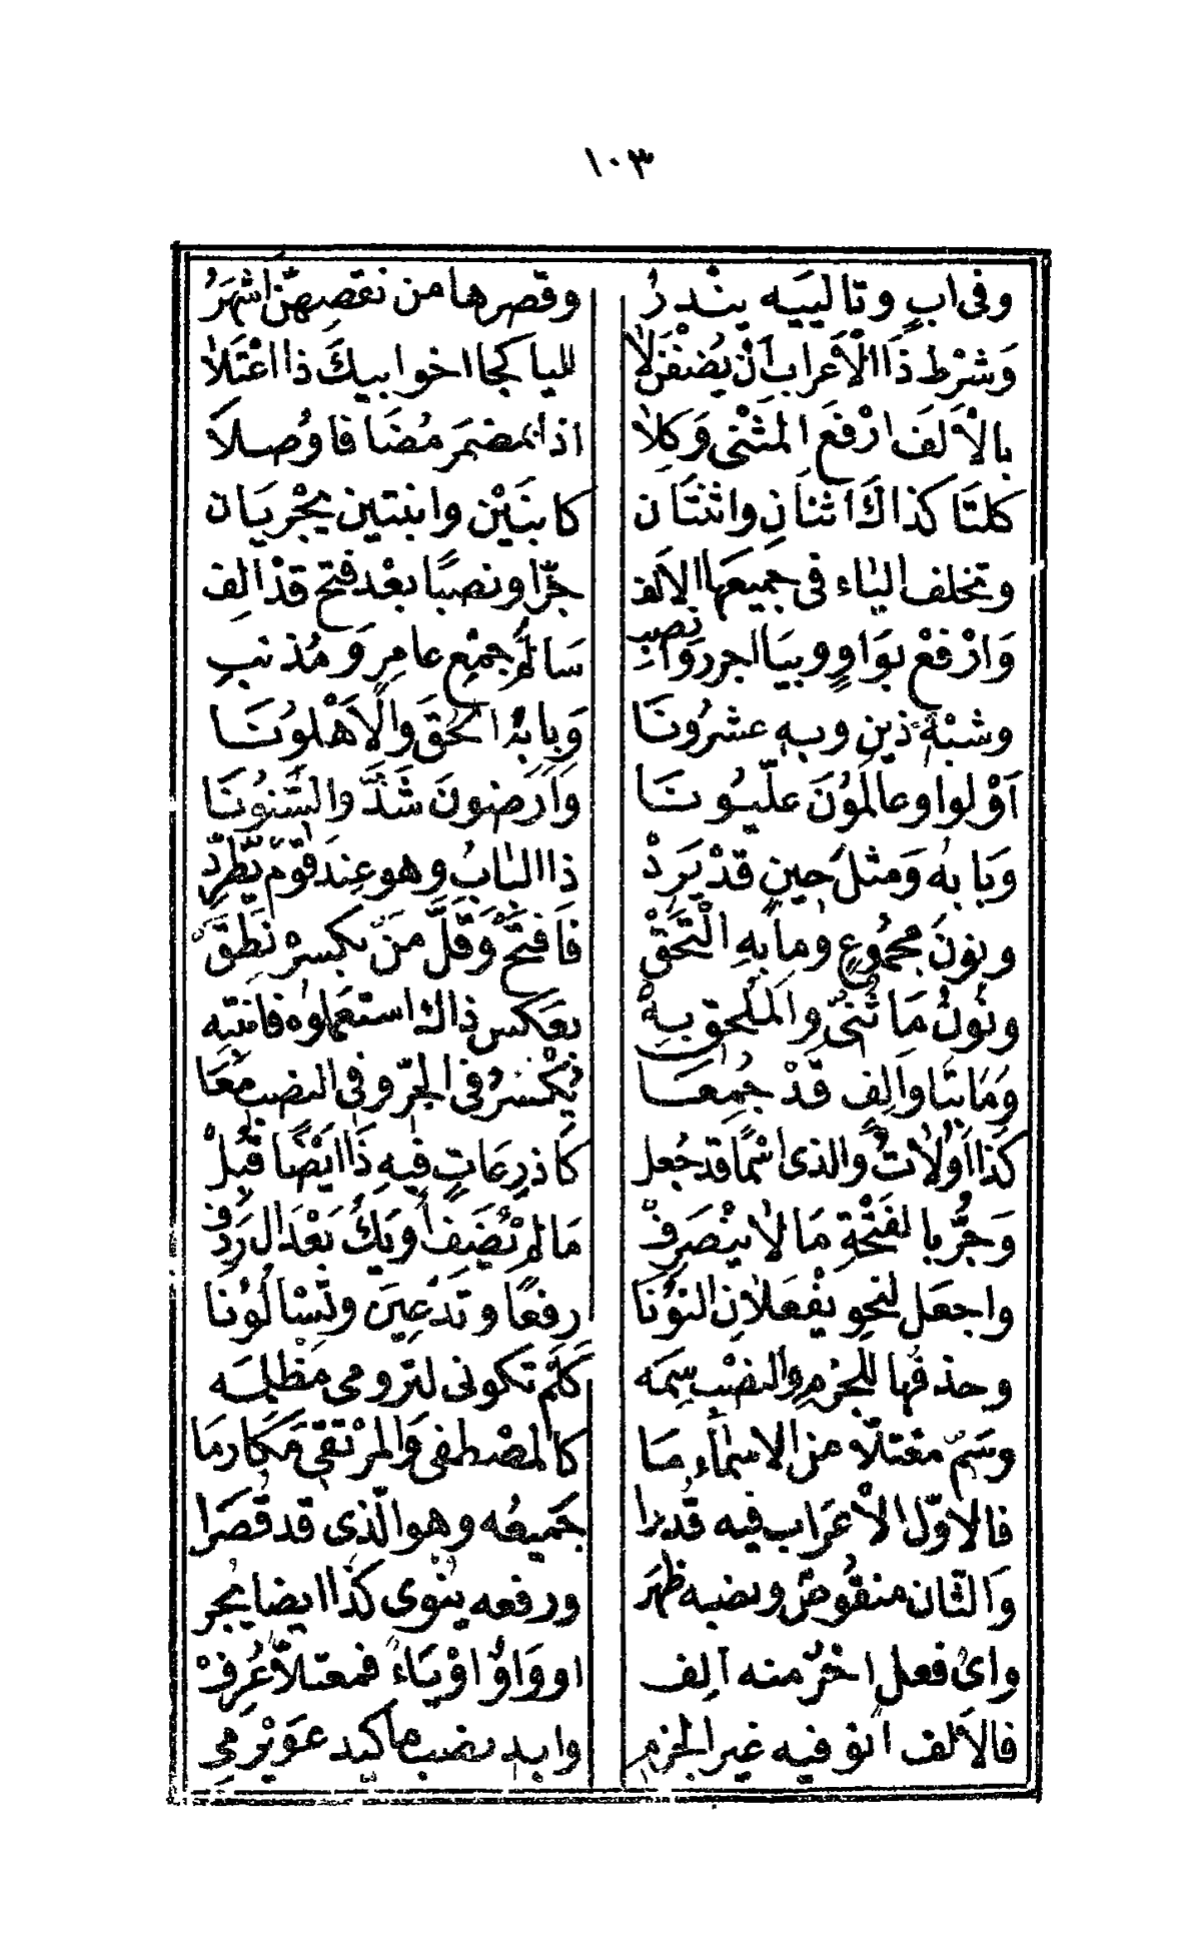 ١٠٣
وفى ابٍ وتالييَه ينْدرُ وقصرها من نقصهنّ اشهَرُ
وَشرْط ذَا الْاَعراب اَنْ يُضفْنَ لاٰ لليا كجا اخوا بيكَ ذا اعْتَلاٰ
بالْاَلفَ ارْفعَ المثنّى وَكِلاٰ اذا بمضمَر مُضَافا وُصلاَ
كلتَا كذاكَ اثنَانِ واثنتَان كابنَيْن وابنتين يجْريَان
وتخلف اليٰاء فى جميعَها الاَلف جرّا ونصبًا بعْد فتح قدْ اُلِف
وَارْفعْ بوَاوٍ وبيَا اجرر وانصِبِ سَالمُ جمْع عامِرٍ وَمُذنبِ
وشبْهُ ذين وبهِ عشرُونَا وَبابهُ الحقَ والاَهْلونَا
اوْلوا وعالموُنَ علّيونَا وَارَضونَ شَذَّ والسّنوُنَا
وَبابهُ وَمثلَ حينٍ قدْ يَردْ ذا البٰابُ وهو عِندَ قوْم يَطّردْ
ونونَ مجموُعٍ وما بهِ الْتَحَقْ فافتَحْ وَقَلَّ منَ بكسرْ نَطقَ
ونوُنُ مَا ثُنّى والملْحق بِهْ بعَكس ذاك استعملوٰه فانتبه
وَمَا بتَا والِفٍ قَدْ جُمعَا يُكْسَرُ فى الجرّ وفى النصب معَا
كَذا اُولاٰتُ والذى اسْمًا قد جُعل كاذرِعَاتٍ فيهِ ذَا ايْضًا قُبلْ
وَجُرّ بالفَتْحَةِ مَا لاٰ ينْصَرفْ مَالم يُضَفْ اَوْ يَكُ بَعْدَ الْ رَدفْ
واجعَل لنحوِ يفْعَلاٰنِ النوُنَا رفعًا وتدْعينَ وتَسْالوُنَا
وحذفُها للجزْم والنصْب سِمَه كلَم تكونى لترومى مظْلمَه
وسَمّ معْتلاّ من الاسْمٰاء مَا كالمصْطفى والمرْتقى مَكارمَا
فالاوّل الْاعْرَاب فيه قُدرا جَميعُه وهو الّذى قد قُصَرا
وَالثّان منقُوصٌ ونصبه ظهَر ورفعه ينْوى كذا ايضا يُجر
واىُ فعلٍ اخرٌ منه اَلِف او وَاوٌ اوْ يَاءٌ فمعتلاًّ عُرفْ
فالاَلف انو فيه غيرَ الجزم وابدِ نصب ما كيدعوَ يرْمى